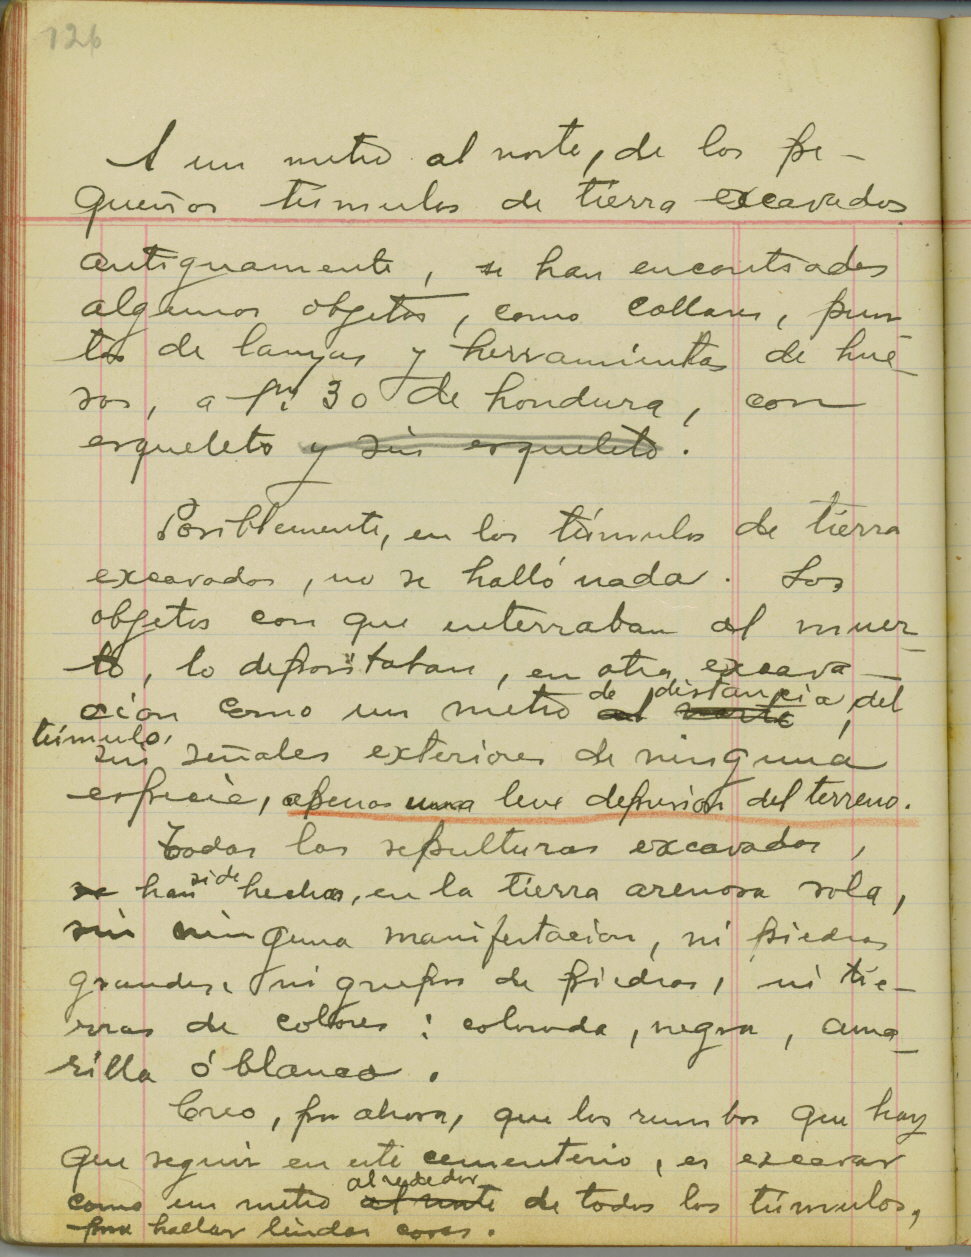 126
A un metro al norte, de los pe-
queños túmulos de tierra excavados
antiguamente, se han encontrados
algunos objetos, como collares, pun
tas de lanzas y herramientas de hue-
sos, a 1m. 30 de hondura, con
esqueleto y sin esqueleto.
Posiblemente, en los túmulos de tierra
excavados, no se halló nada. Los
objetos con que enterraban al muer-
to, lo depositaban, en otra excava-
de distancia
ción como un metro al norte, del
túmulo,
sin señales exteriores de ninguna
especie, apenas una leve depresión del terreno.
Todas las sepulturas excavadas,
sido
se han hechas, en la tierra arenosa sola,
sin ninguna manifestacion, ni piedras
grandes, ni grupos de piedras, ni tie-
rras de colores: colorada, negra, ama-
rilla ó blanca.
Creo, por ahora, que los rumbos que hay
que seguir en este cementerio, es excavar
alrededor
como un metro al norte de todos los túmulos,
para hallar lindas cosas.